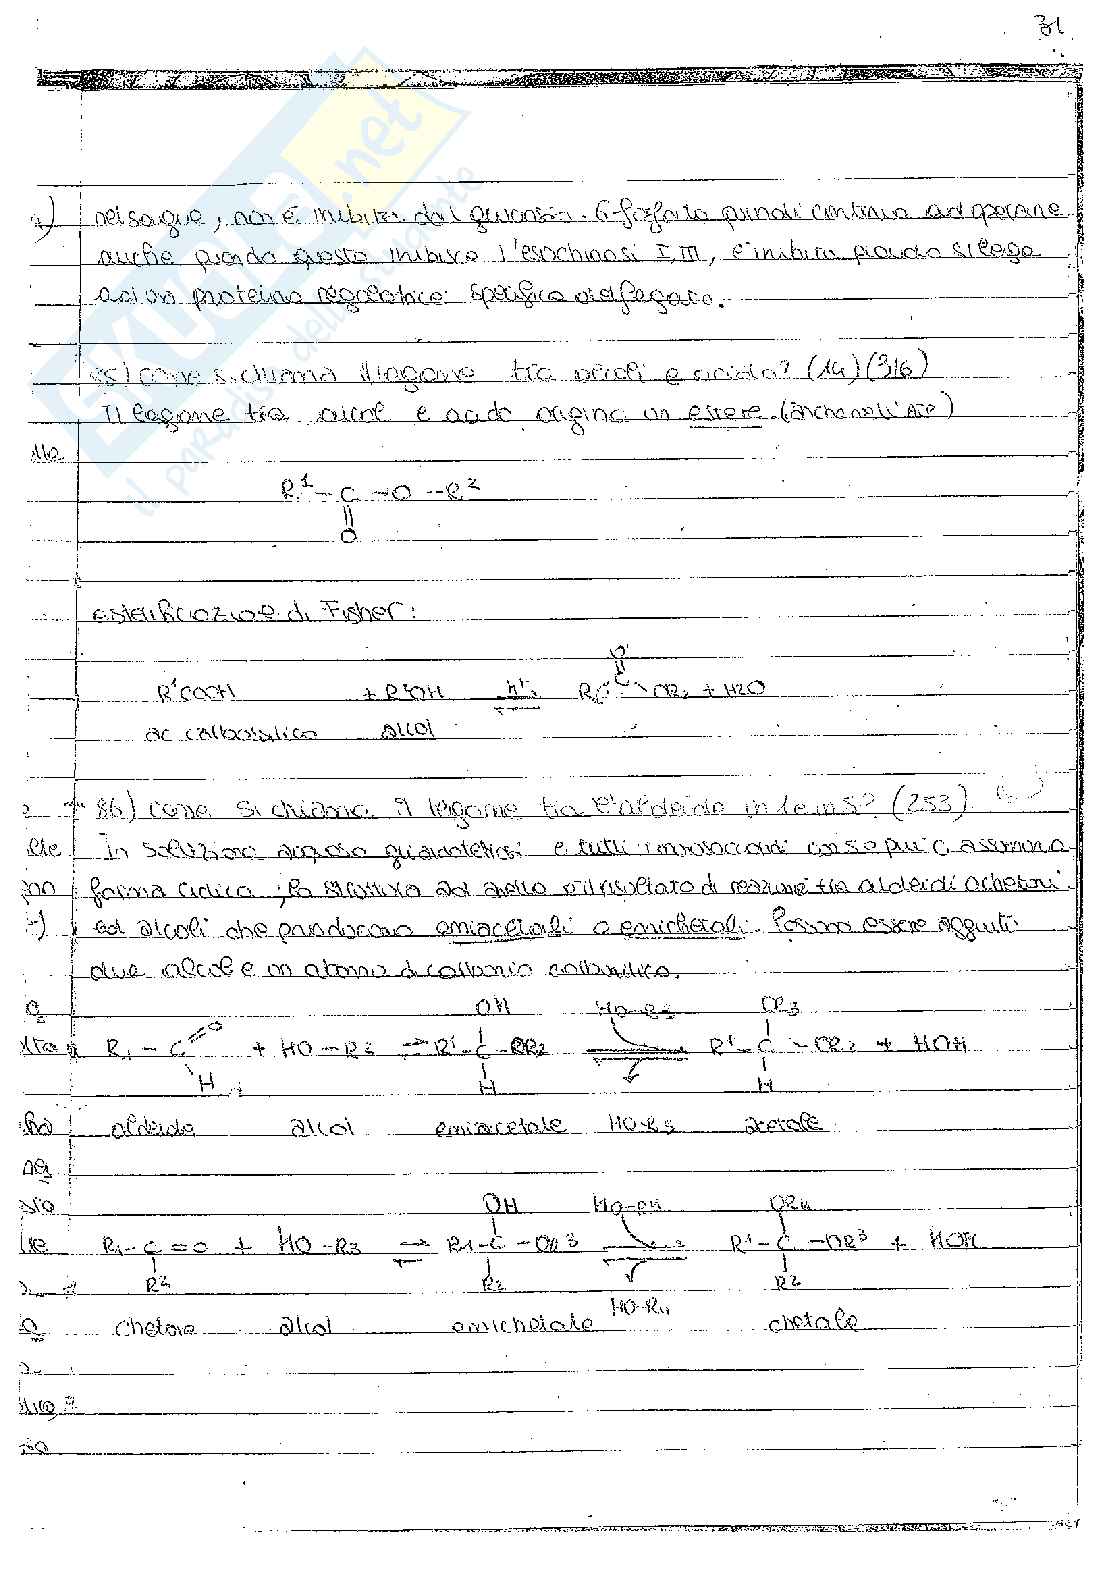 31
nel sangue, non è inibita dal glucosio-6-fosfato quindi continua ad operare
anche quando questo inibisce l'esochinasi I, III, è inibita quando si lega
ad una proteina regolatrice specifica del fegato.
85) come si chiama il legame tra alcoli e acido? (14) (316)
Il legame tra alcol e acido origina un estere. (anche nell'ATP)
R1 - C - O - R2
O
esterificazione di Fisher:
O
R'COOH + R2OH H+ R1 C OR2 + H2O
ac carbossilico alcol
86) come si chiama il legame tra l'aldeide in 1 e in 5? (253)
In soluzione acquosa e tutti i monosaccaridi con 5 o più C assumono
forma ciclica, la struttura ad anello è il risultato di reazione tra aldeidi o chetoni
ed alcoli che producono emiacetali o emichetali. Possono essere aggiunti
due alcol e un atomo di carbonio carbonilico.
OH HO-R3 OR3
R1 - C = O + HO - R2 R1 - C - OR2 R1 - C - OR2 + HOH
H H H
aldeide alcol emiacetale HO-R3 acetale
OH HO-R4 OR4
R1 - C = O + HO - R3 R1 - C - OR3 R1 - C - OR3 + HOH
R2 R2 R2
HO-R4
chetone alcol emichetale chetale
SKUOLA.net
il paradiso dello studente